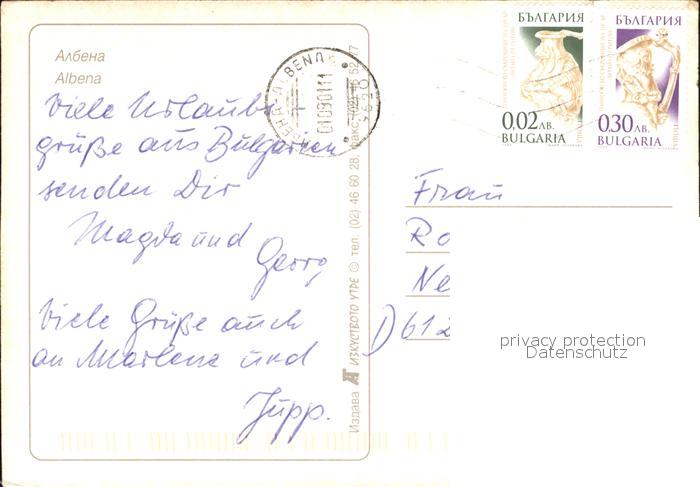 Албена
Albena
Viele Urlaubs-
grüße aus Bulgarien
senden Dir
Magda und
Georg
Viele Grüße auch
an Marlene und
Jupp.
ALBENA
010901 11
Издава АТ ИЗКУСТВОТО УТРЕ © тел. (02) 46 60 28, факс (02) 46 52 77
БЪЛГАРИЯ
0,02 ЛВ.
BULGARIA
БЪЛГАРИЯ
0,30 ЛВ.
BULGARIA
Frau
Ro
Ne
D 612
privacy protection
Datenschutz